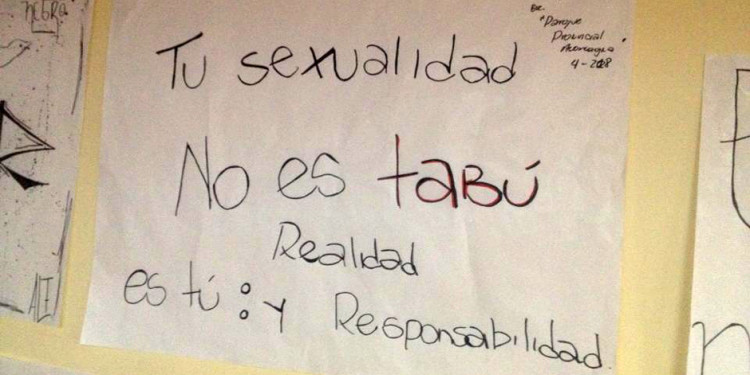 NEGRA
Esc.
"Parque
Provincial
Aconcagua"
4-208
Tu sexualidad
No es taBÚ
Realidad
es tú : y Responsabilidad.
ALE